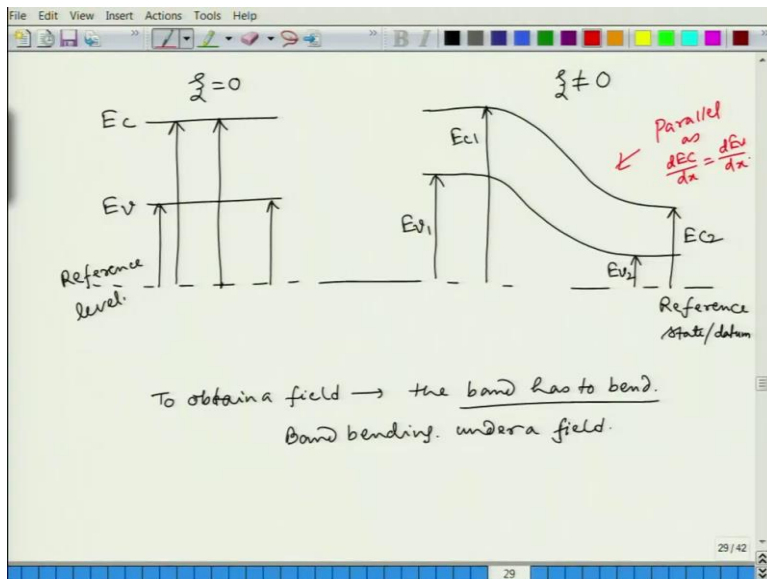 File Edit View Insert Actions Tools Help
B I
ξ = 0
ξ ≠ 0
Ec
Ev
Reference
level.
Ec1
Ev1
Parallel
as
dEC/dx = dEv/dx.
Ec2
Ev2
Reference
state/datum
To obtain a field → the band has to bend.
Band bending. under a field.
29/42
29